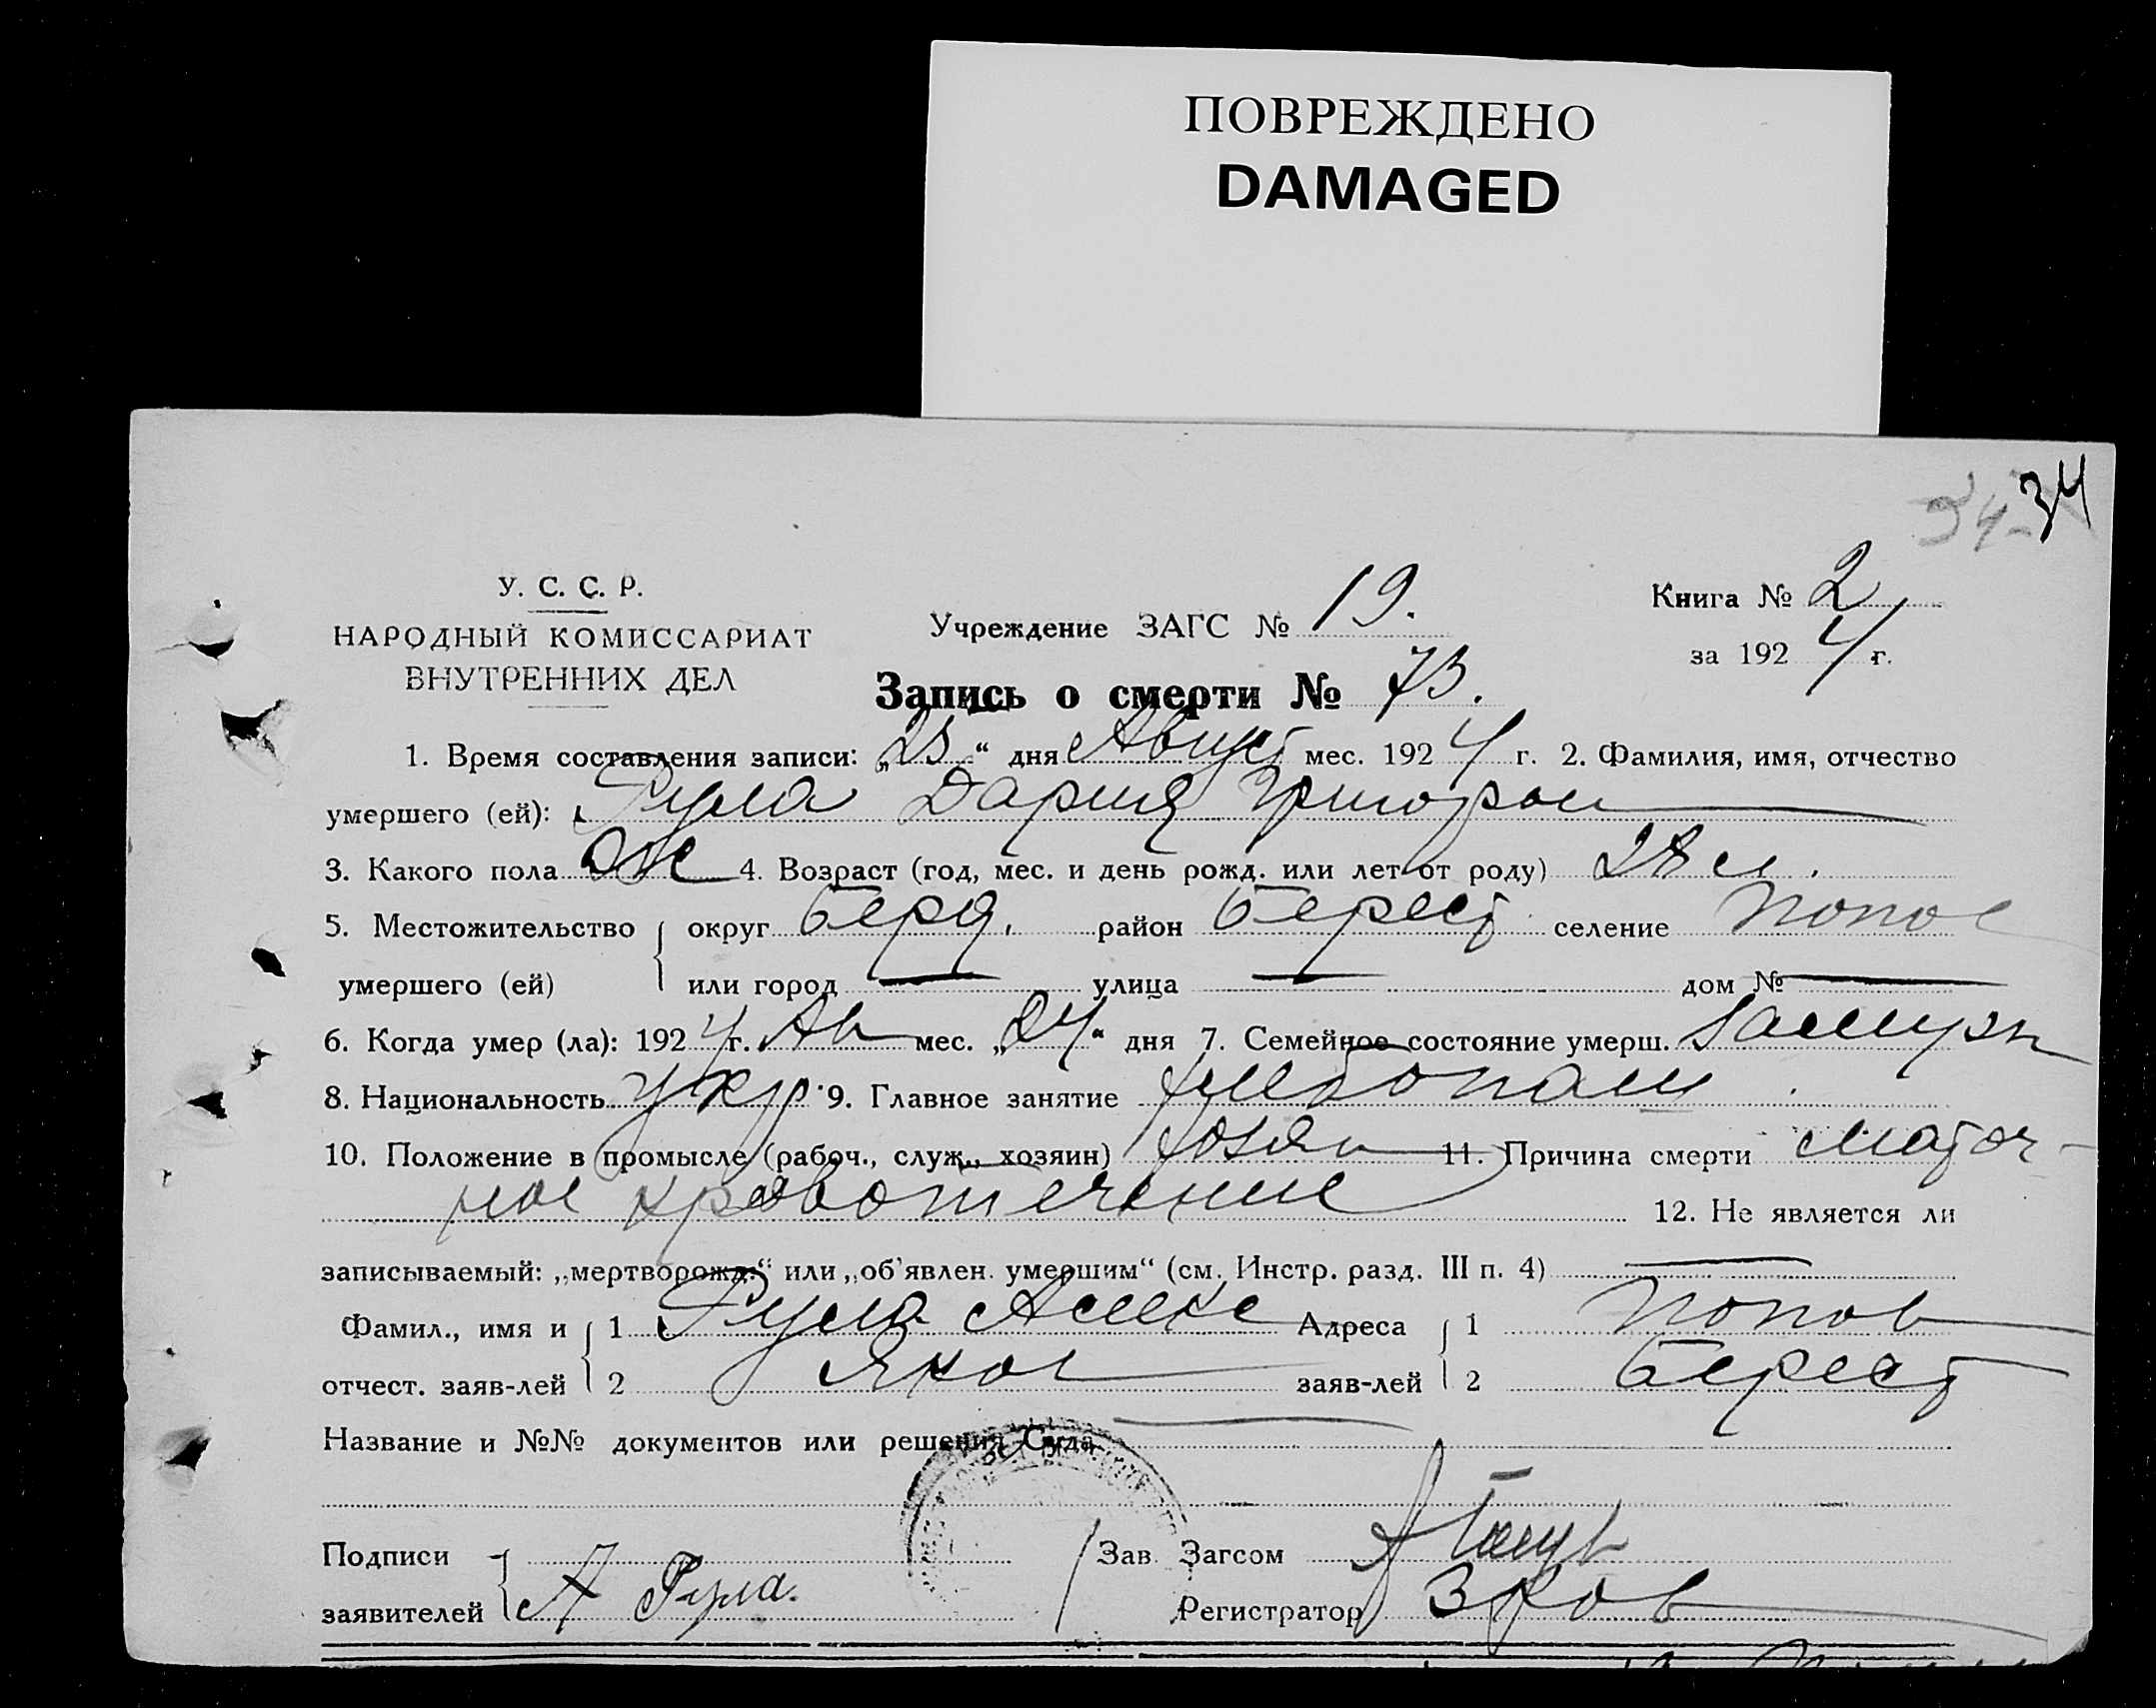 ПОВРЕЖДЕНО
DAMAGED
34- 34
У. С. С. Р.
НАРОДНЫЙ КОМИССАРИАТ
ВНУТРЕННИХ ДЕЛ
Учреждение ЗАГС № 19.
Книга № 2
за 1924 г.
Запись о смерти № 73.
1. Время составления записи: „25“ дня Август мес. 1924 г. 2. Фамилия, имя, отчество
умершего (ей): Рула Дария Григорон
3. Какого пола Ж 4. Возраст (год, мес. и день рожд. или лет от роду) 28 л.
5. Местожительство округ Берд. район Берест селение Попов
умершего (ей) или город — улица — дом № —
6. Когда умер (ла): 1924 г. Ав мес. „24“ дня 7. Семейное состояние умерш. Замужн
8. Национальность Укр. 9. Главное занятие хлебопаш
10. Положение в промысле (рабоч., служ., хозяин) хозяи 11. Причина смерти маточ-
ное кровотечение 12. Не является ли
записываемый: „мертворожд.“ или „об'явлен. умершим“ (см. Инстр. разд. III п. 4) —
Фамил., имя и 1 Рула Алекс Адреса 1 Попов
отчест. заяв-лей 2 Яков заяв-лей 2 Берест
Название и №№ документов или решения Суда
Подписи Зав. Загсом
заявителей А Рула. Регистратор